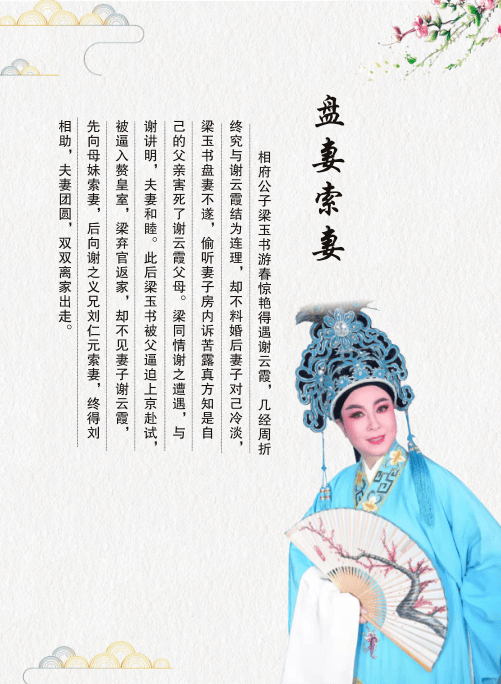 盘妻索妻
相府公子梁玉书游春惊艳得遇谢云霞，几经周折
终究与谢云霞结为连理，却不料婚后妻子对己冷淡，
梁玉书盘妻不遂，偷听妻子房内诉苦露真方知是自
己的父亲害死了谢云霞父母。梁同情谢之遭遇，与
谢讲明，夫妻和睦。此后梁玉书被父逼迫上京赴试，
被逼入赘皇室，梁弃官返家，却不见妻子谢云霞，
先向母妹索妻，后向谢之义兄刘仁元索妻，终得刘
相助，夫妻团圆，双双离家出走。